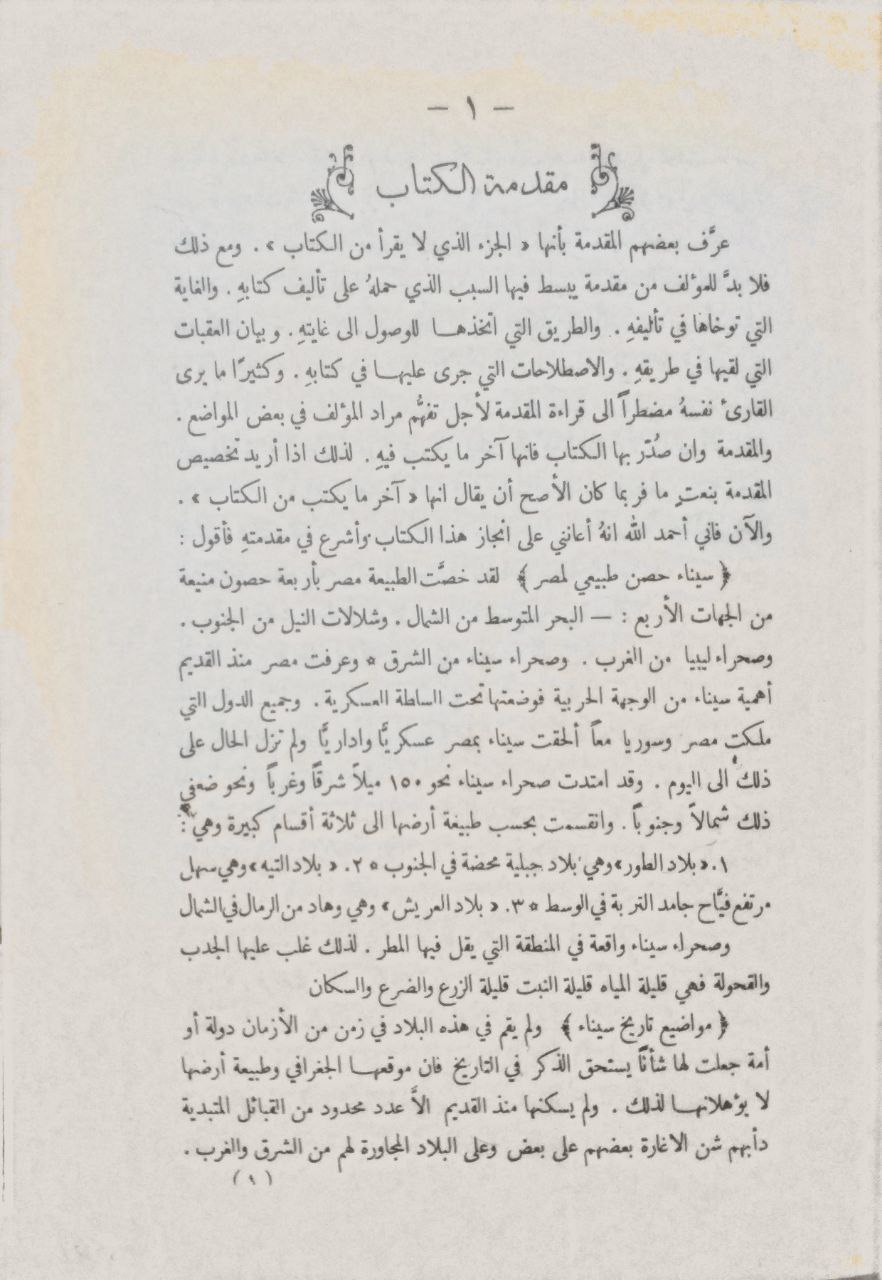 — ١ —
مقدمة الكتاب
عرَّف بعضهم المقدمة بأنها « الجزء الذي لا يقرأ من الكتاب » . ومع ذلك
فلا بدَّ للمؤلف من مقدمة يبسط فيها السبب الذي حملهُ على تأليف كتابهِ . والغاية
التي توخاها في تأليفهِ . والطريق التي اتخذهـا للوصول الى غايتهِ . وبيان العقبات
التي لقيها في طريقهِ . والاصطلاحات التي جرى عليهـا في كتابهِ . وكثيرًا ما يرى
القارئ نفسهُ مضطراً الى قراءة المقدمة لأجل تفهُّم مراد المؤلف في بعض المواضع .
والمقدمة وان صُدّر بها الكتاب فانها آخر ما يكتب فيهِ . لذلك اذا أريد تخصيص
المقدمة بنعتٍ ما فربما كان الأصح أن يقال انها « آخر ما يكتب من الكتاب » .
والآن فاني أحمد الله انهُ أعانني على انجاز هذا الكتاب وأشرع في مقدمتهِ فأقول :
﴿ سيناء حصن طبيعي لمصر ﴾ لقد خصَّت الطبيعة مصر بأربعة حصون منيعة
من الجهات الأربع : — البحر المتوسط من الشمال . وشلالات النيل من الجنوب .
وصحراء ليبيا من الغرب . وصحراء سيناء من الشرق * وعرفت مصر منذ القديم
أهمية سيناء من الوجهة الحربية فوضعتها تحت السلطة العسكرية . وجميع الدول التي
ملكت مصر وسوريا معاً ألحقت سيناء بمصر عسكريًّا واداريًّا ولم تزل الحال على
ذلك الى اليوم . وقد امتدت صحراء سيناء نحو ١٥٠ ميلاً شرقاً وغرباً ونحو ضعفي
ذلك شمالاً وجنوباً . وانقسمت بحسب طبيعة أرضها الى ثلاثة أقسام كبيرة وهي :
١. « بلاد الطور » وهي بلاد جبلية محضة في الجنوب * ٢. « بلاد التيه » وهي سهل
مرتفع فيَّاح جامد التربة في الوسط * ٣. « بلاد العريش » وهي وهاد من الرمال في الشمال
وصحراء سيناء واقعة في المنطقة التي يقل فيها المطر . لذلك غلب عليها الجدب
والقحولة فهي قليلة المياه قليلة النبت قليلة الزرع والضرع والسكان
﴿ مواضيع تاريخ سيناء ﴾ ولم يقم في هذه البلاد في زمن من الأزمان دولة أو
أمة جعلت لها شأناً يستحق الذكر في التاريخ فان موقعهـا الجغرافي وطبيعة أرضها
لا يؤهلانهـا لذلك . ولم يسكنها منذ القديم الاَّ عدد محدود من القبائل المتبدية
دأبهم شن الاغارة بعضهم على بعض وعلى البلاد المجاورة لهم من الشرق والغرب .
( ١ )